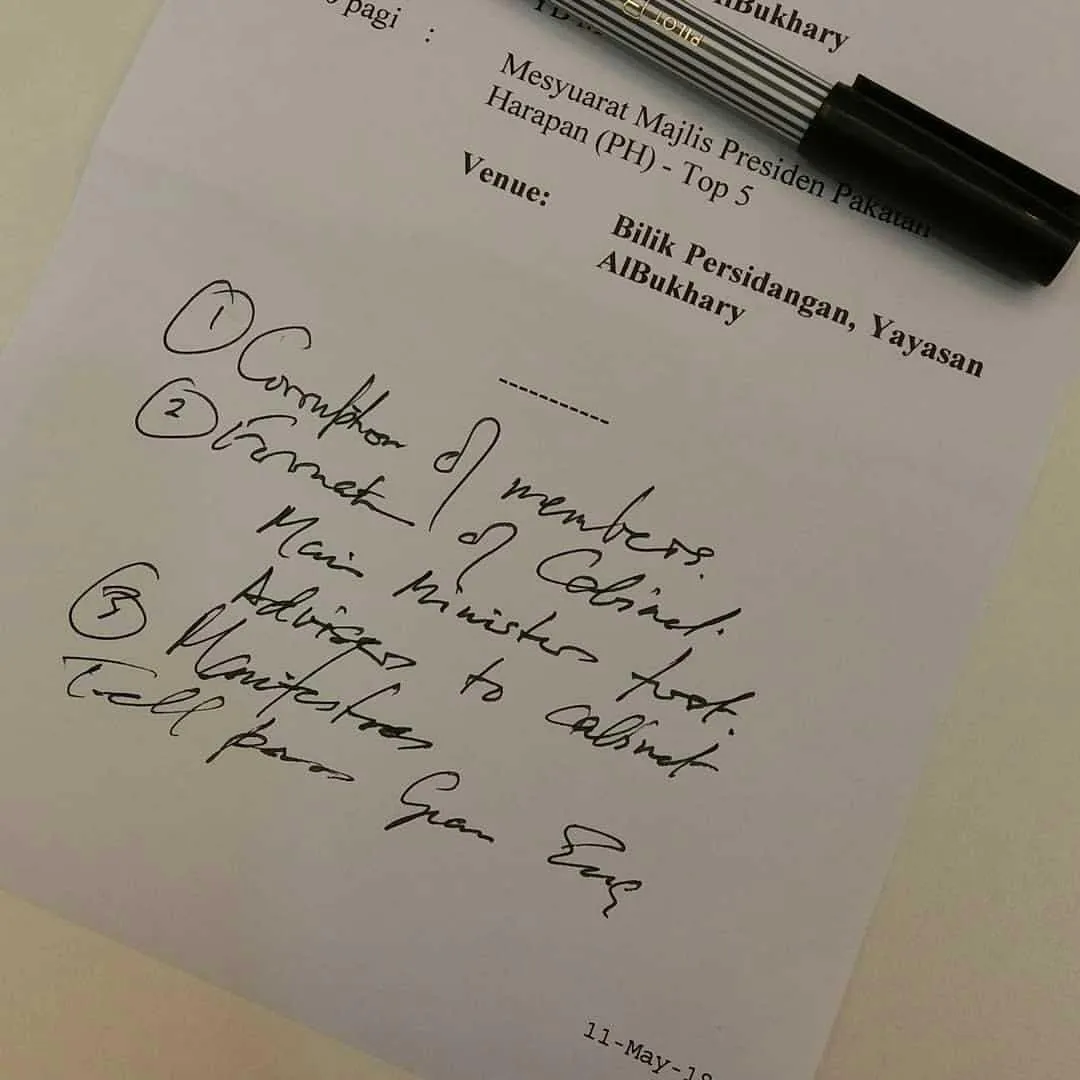 AlBukhary
pagi :
PILOT
Mesyuarat Majlis Presiden Pakatan
Harapan (PH) - Top 5
Venue:
Bilik Persidangan, Yayasan
AlBukhary
----------
1 Corruption of members.
2 Format of Cabinet.
Main Ministers first.
Advisers to cabinet
3 Manifestoes
Tell Guan Eng
11-May-18